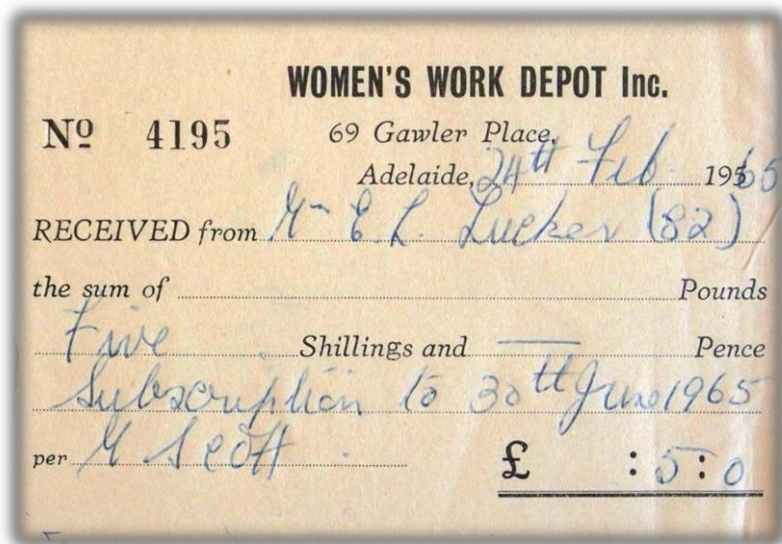 WOMEN'S WORK DEPOT Inc.
Nº 4195 69 Gawler Place,
Adelaide, 24th Feb 1965
RECEIVED from E. L. Tucker (82)
the sum of Pounds
Five Shillings and — Pence
Subscription to 30th June 1965
per Scott £ : 5 : 0